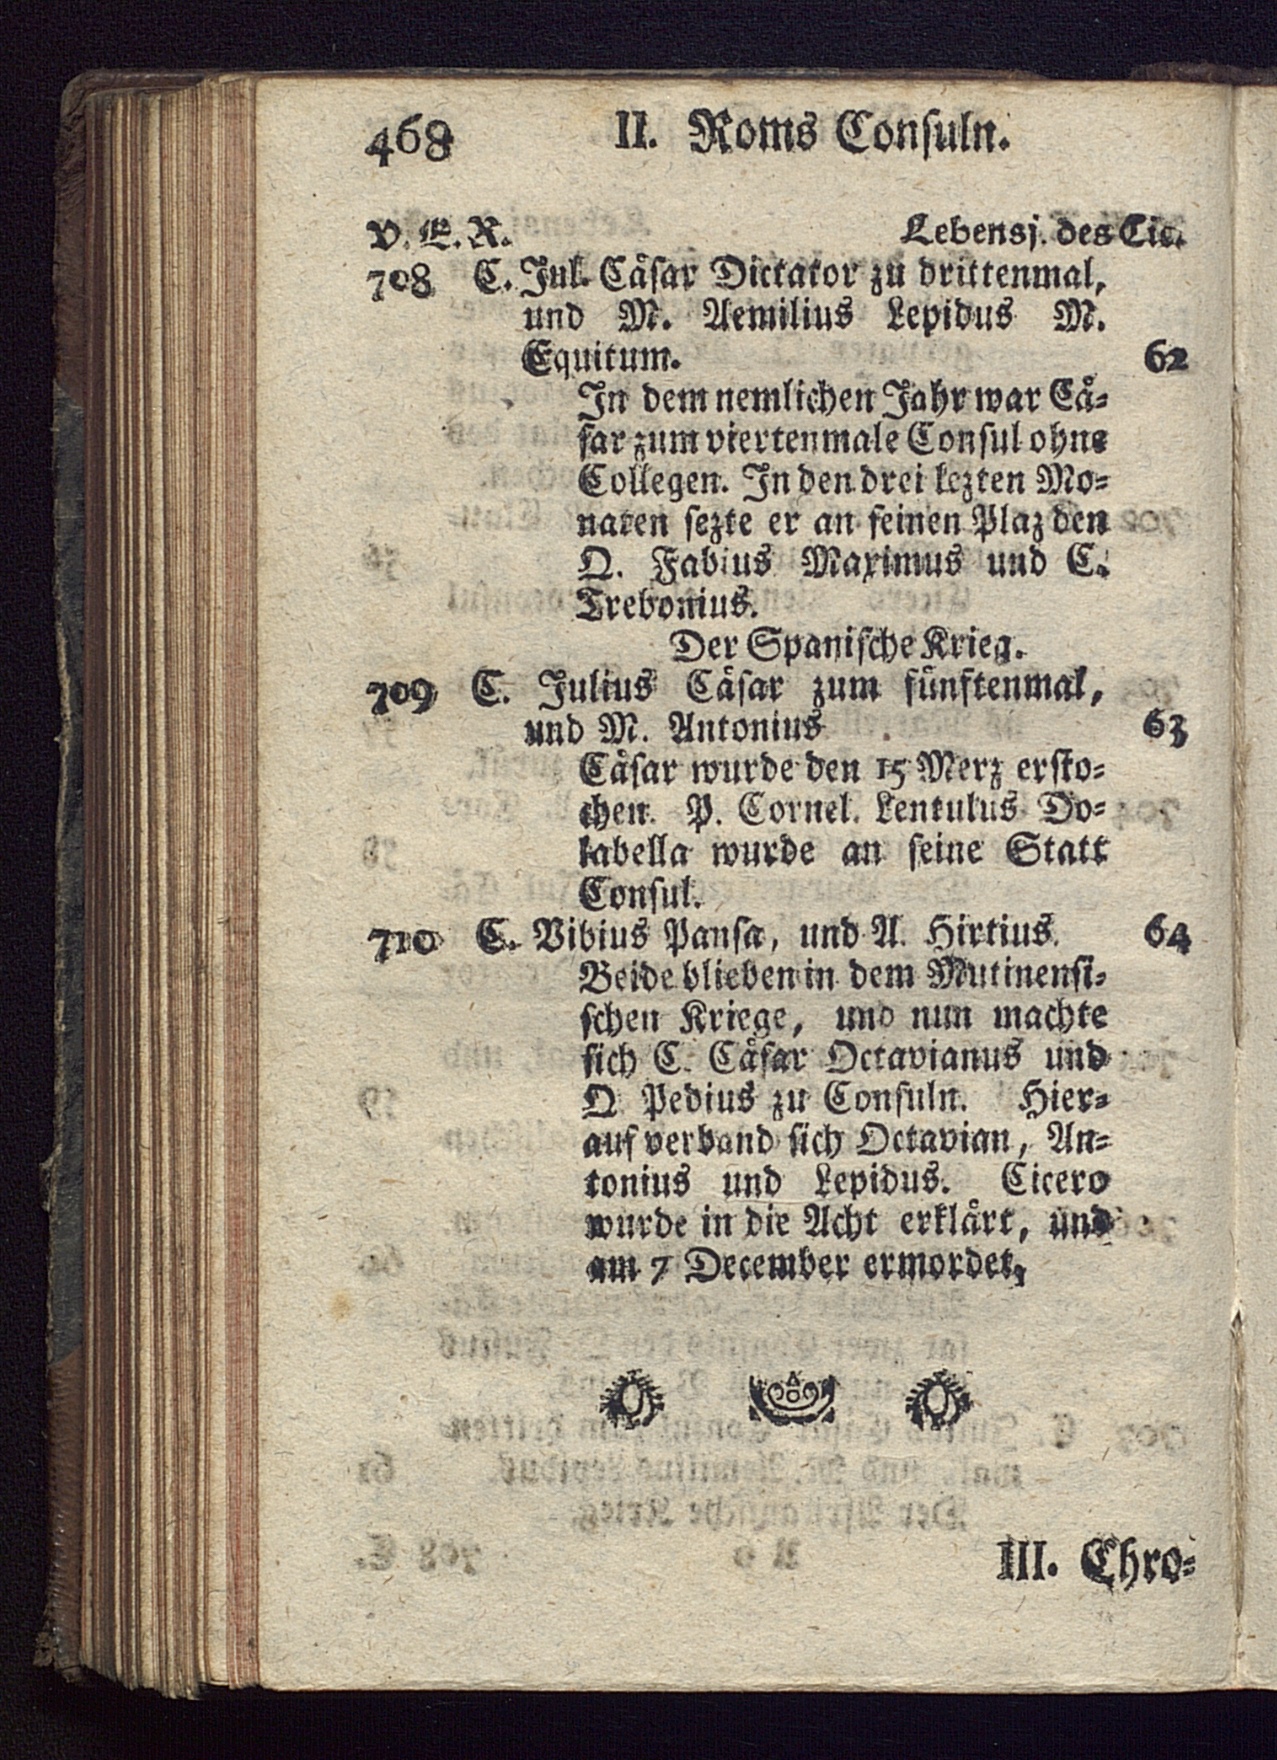 468 II. Roms Consuln.
V. E. R. Lebensj. des Cic.
708 C. Jul. Cäsar Dictator zu drittenmal,
und M. Aemilius Lepidus M.
Equitum. 62
In dem nemlichen Jahr war Cä-
sar zum viertenmale Consul ohne
Collegen. In den drei lezten Mo-
naten sezte er an seinen Plaz den
Q. Fabius Maximus und C.
Trebonius.
Der Spanische Krieg.
709 C. Julius Cäsar zum fünftenmal,
und M. Antonius 63
Cäsar wurde den 15 Merz ersto-
chen. P. Cornel. Lentulus Do-
labella wurde an seine Statt
Consul.
710 C. Vibius Pansa, und A. Hirtius. 64
Beide blieben in dem Mutinensi-
schen Kriege, und nun machte
sich C. Cäsar Octavianus und
Q Pedius zu Consuln. Hier-
auf verband sich Octavian, An-
tonius und Lepidus. Cicero
wurde in die Acht erklärt, und
am 7 December ermordet,
III. Chro-